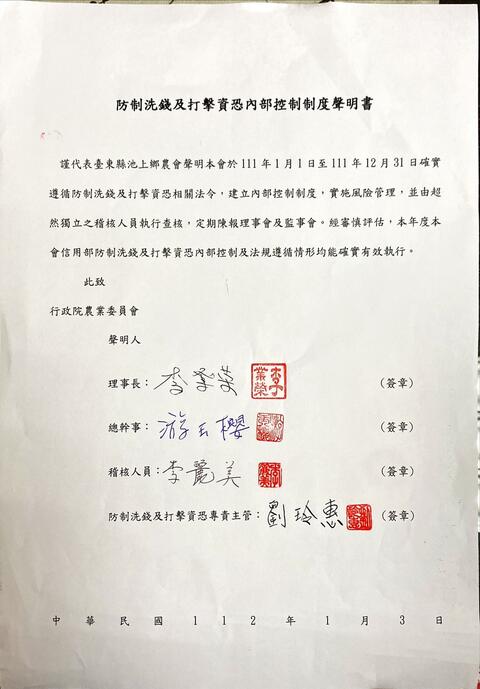 防制洗錢及打擊資恐內部控制制度聲明書
謹代表臺東縣池上鄉農會聲明本會於111年1月1日至111年12月31日確實
遵循防制洗錢及打擊資恐相關法令，建立內部控制制度，實施風險管理，並由超
然獨立之稽核人員執行查核，定期陳報理事會及監事會。經審慎評估，本年度本
會信用部防制洗錢及打擊資恐內部控制及法規遵循情形均能確實有效執行。
此致
行政院農業委員會
聲明人
理事長：李業榮 李業榮 (簽章)
總幹事：游玉櫻 (簽章)
稽核人員：李麗美 (簽章)
防制洗錢及打擊資恐專責主管：劉玲惠 (簽章)
中華民國112年1月3日